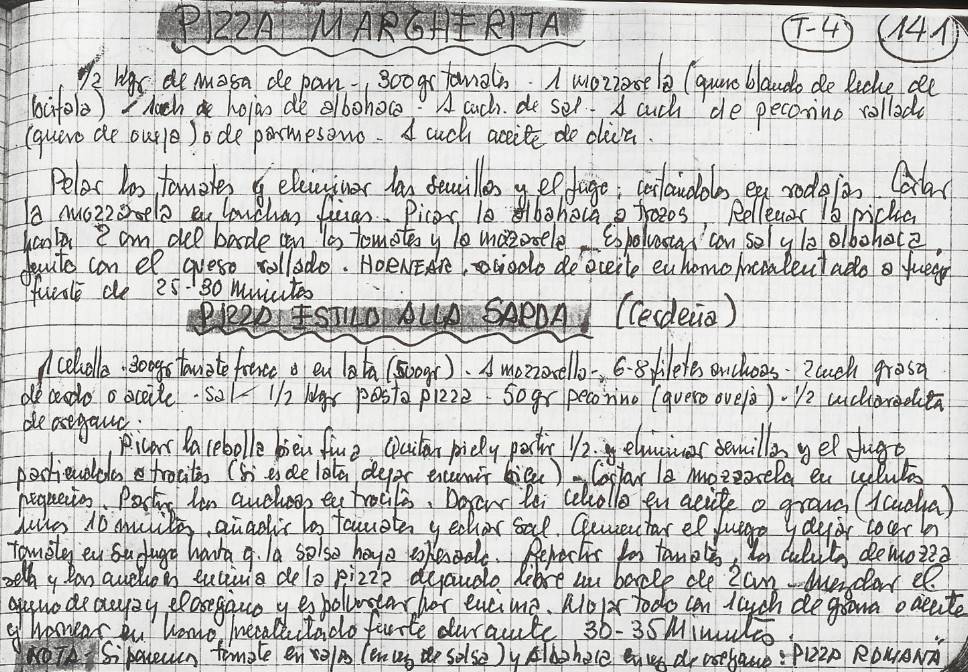 PIZZA MARGHERITA T-4 141
1/2 kgr de masa de pan - 300gr tomates - 1 mozzarela (queso blando de leche de
búfala) 1 cuch de hojas de albahaca - 1 cuch. de sal - 1 cuch de pecorino rallado
(queso de oveja) o de parmesano - 1 cuch aceite de oliva.
Pelar los tomates y eliminar las semillas y el jugo; cortándolos en rodajas. Cortar
la mozzarela en lonchas finas. Picar la albahaca a trozos. Rellenar la
hasta 2 cm del borde con los tomates y la mozarela. Espolvorear con sal y la albahaca
junto con el queso rallado. HORNEAR, rociado de aceite en horno precalentado a fuego
fuerte de 25-30 minutos
PIZZA ESTILO ALLA SARDA (Cerdeña)
1 cebolla - 300gr tomate fresco o en lata (500gr) - 1 mozzarella - 6-8 filetes anchoas - 2 cuch grasa
de cerdo o aceite - sal - 1/2 kgr pasta pizza - 50gr pecorino (queso oveja) - 1/2 cucharadita
de oregano:
Picar la cebolla bien fina Quitar piel y partir 1/2 y eliminar semillas y el jugo
partiendolos a trocitos (Si es de lata dejar escurrir bien) - Cortar la mozzarela en cubitos
pequeños. Partir las anchoas en trocitos. Dorar la cebolla en aceite o grasa (1 cucha)
unos 10 minutos, añadir los tomates y echar sal. Aumentar el fuego y dejar cocer los
tomates en su jugo hasta q. la salsa haya espesado. Repartir los tomates, los cubitos de mozza
rela y las anchoas encima de la pizza dejando libre un borde de 2cm - Mezclar el
queso de oveja y el oregano y espolvorear por encima. Mojar todo con 1 cuch de grasa o aceite
y hornear en horno precalentado fuerte durante 30-35 Minutos.
NOTA: Si ponemos tomate en rajas (en vez de salsa) y Albahaca en vez de oregano: PIZZA ROMANA"